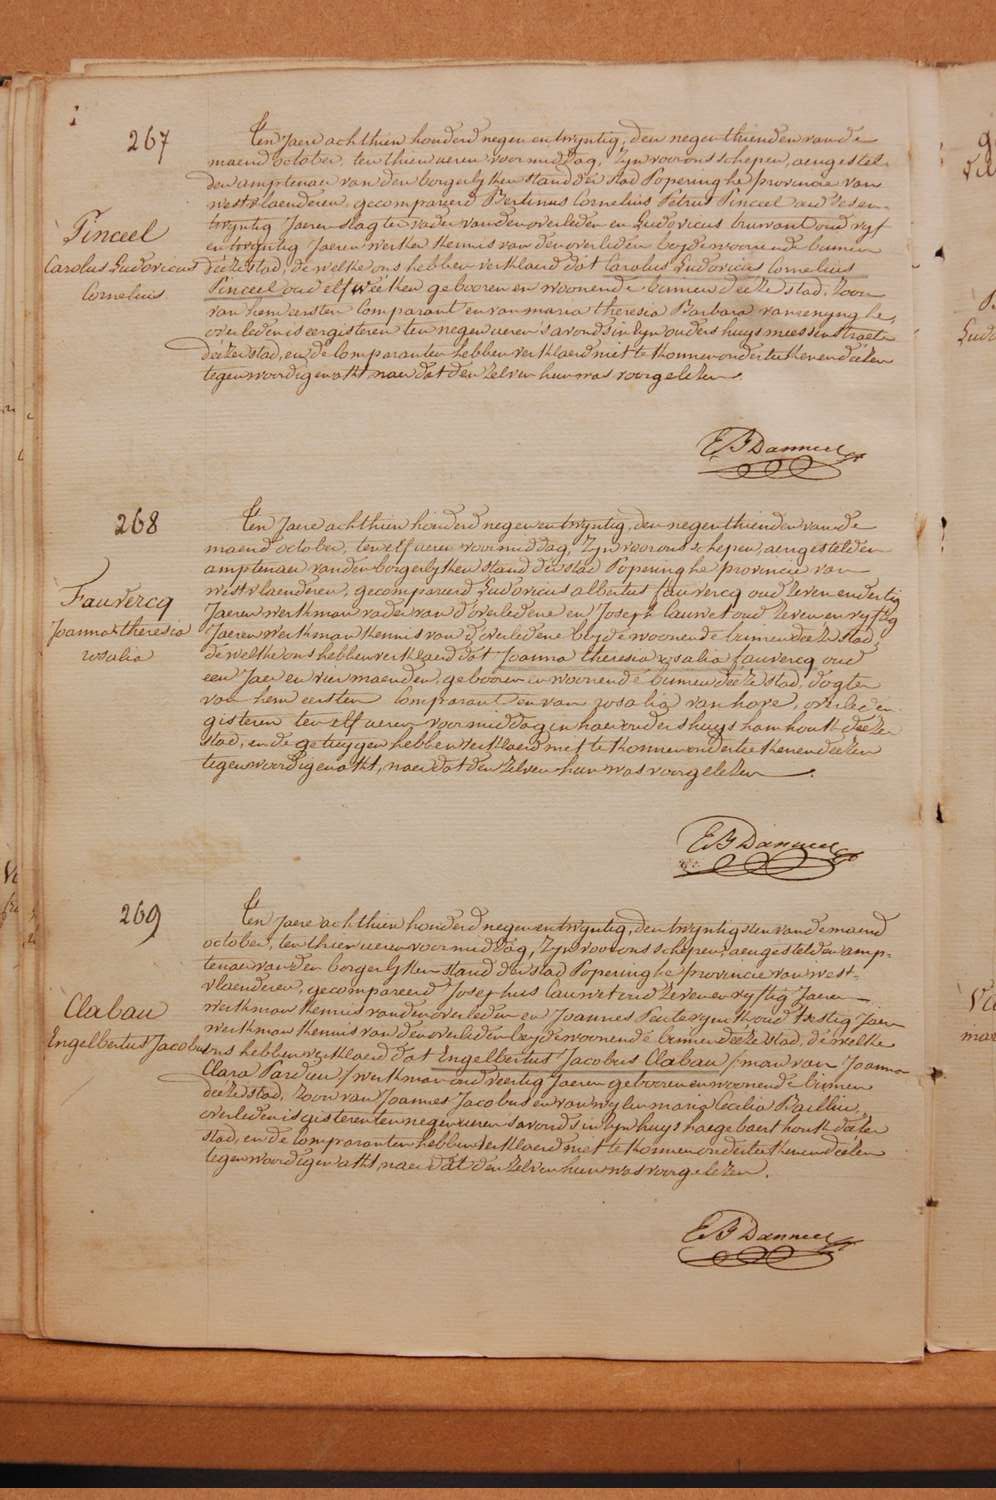 267
Pinceel
Carolus Ludovicus
Cornelius
Ten Jaere achthien honderd negen en twyntig, den negenthienden van de
maend october, ten thien ueren voormiddag, Zyn voor ons schepen, aengestel-
den amptenaer van den borgerlyken stand der stad Poperinghe provincie van
westvlaenderen, gecompareerd Bertinus Cornelius Petrus Pinceel oud
twyntig Jaeren slagter vader van den overleden en Ludovicus oud vyf
en twyntig Jaeren werkman kennis van den overleden beyde woonende binnen
deeze stad, de welke ons hebben verklaerd dat Carolus Ludovicus Cornelius
Pinceel oud elf weeken gebooren en woonende binnen deeze stad, zoon
van hem eersten Comparant en van maria theresia Barbara
overleden is eergisteren ten negen ueren s'avonds in zyn ouders huys straete
deezer stad, en de Comparanten hebben verklaerd niet te konnen onderteekenen deezen
tegenwoordigen akt, naer dat den zelven hun was voorgelezen.
E B Danneel
268
Fauvercq
Joanna theresia
rosalia
Ten Jaere achthien honderd negen en twyntig, den negenthienden van de
maend october, ten elf ueren voormiddag, Zyn voor ons schepen, aengestelden
amptenaer van den borgerlyken stand der stad Poperinghe provincie van
westvlaenderen, gecompareerd Ludovicus albertus fauvercq oud zeven en dertig
Jaeren werkman vader van d'overledene en Joseph Cauwet oud zeven en vyftig
Jaeren werkman kennis van d'overledene beyde woonende binnen deeze stad,
de welke ons hebben verklaerd dat Joanna theresia rosalia fauvercq oud
een Jaer en vier maenden, gebooren en woonende binnen deeze stad, dogter
van hem eersten Comparant en van rosalia vanhove, overleden
gisteren ten elf ueren voormiddag in haer ouders huys hamhoek deezer
stad, en de getuygen hebben verklaerd niet te konnen onderteekenen deezen
tegenwoordigen akt, naer dat den zelven hun was voorgelezen.
E B Danneel
269
Clabau
Engelbertus Jacobus
Ten Jaere achthien honderd negen en twyntig, den twyntigsten van de maend
october, ten thien ueren voormiddag, Zyn voor ons schepen, aengestelden amp-
tenaer van den borgerlyken stand der stad Poperinghe provincie van west-
vlaenderen, gecompareerd Josephus Cauwet oud zeven en vyftig Jaeren
werkman kennis van den overleden en Joannes oud Jaeren
werkman kennis van den overleden beyde woonende binnen deeze stad, de welke
ons hebben verklaerd dat Engelbertus Jacobus Clabau /man van Joanna
Clara Pardieu/ werkman oud veertig Jaeren gebooren en woonende binnen
deeze stad, zoon van Joannes Jacobus en van wylen maria Cecilia Baillieu,
overleden is gisteren ten negen ueren s'avonds in zyn huys haegebaerthoek deezer
stad, en de Comparanten hebben verklaerd niet te konnen onderteekenen deezen
tegenwoordigen akt, naer dat den zelven hun was voorgelezen.
E B Danneel